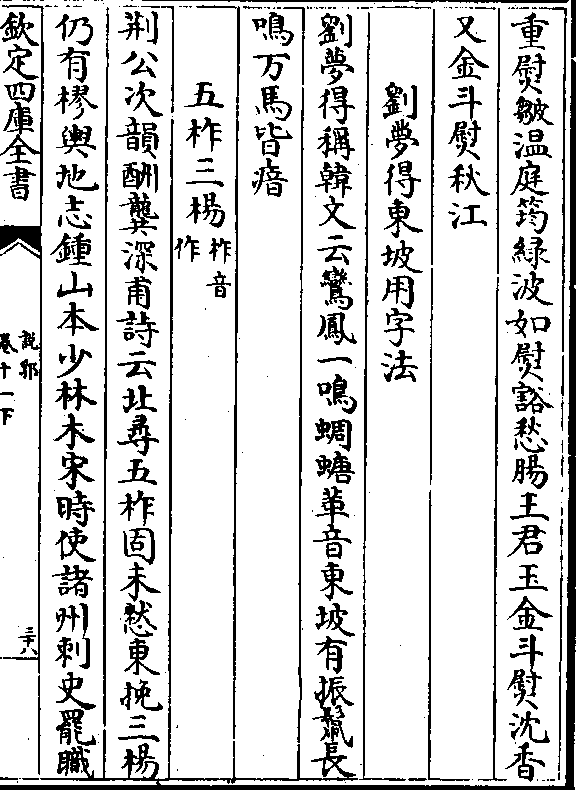 重熨皺温庭筠緑波如熨豁愁腸王君玉金斗熨沈香
又金斗熨秋江
劉夢得東坡用字法
劉夢得稱韓文云鸞鳳一鳴蜩螗革音東坡有振鬛長
鳴万馬皆瘖
五柞三楊柞音作
荆公次韻酬龔深甫詩云北尋五柞固未憖東挽三楊
仍有樛輿地志鍾山本少林木宋時使諸州刺史罷職
欽定四庫全書
說郛
卷十一下
三十八